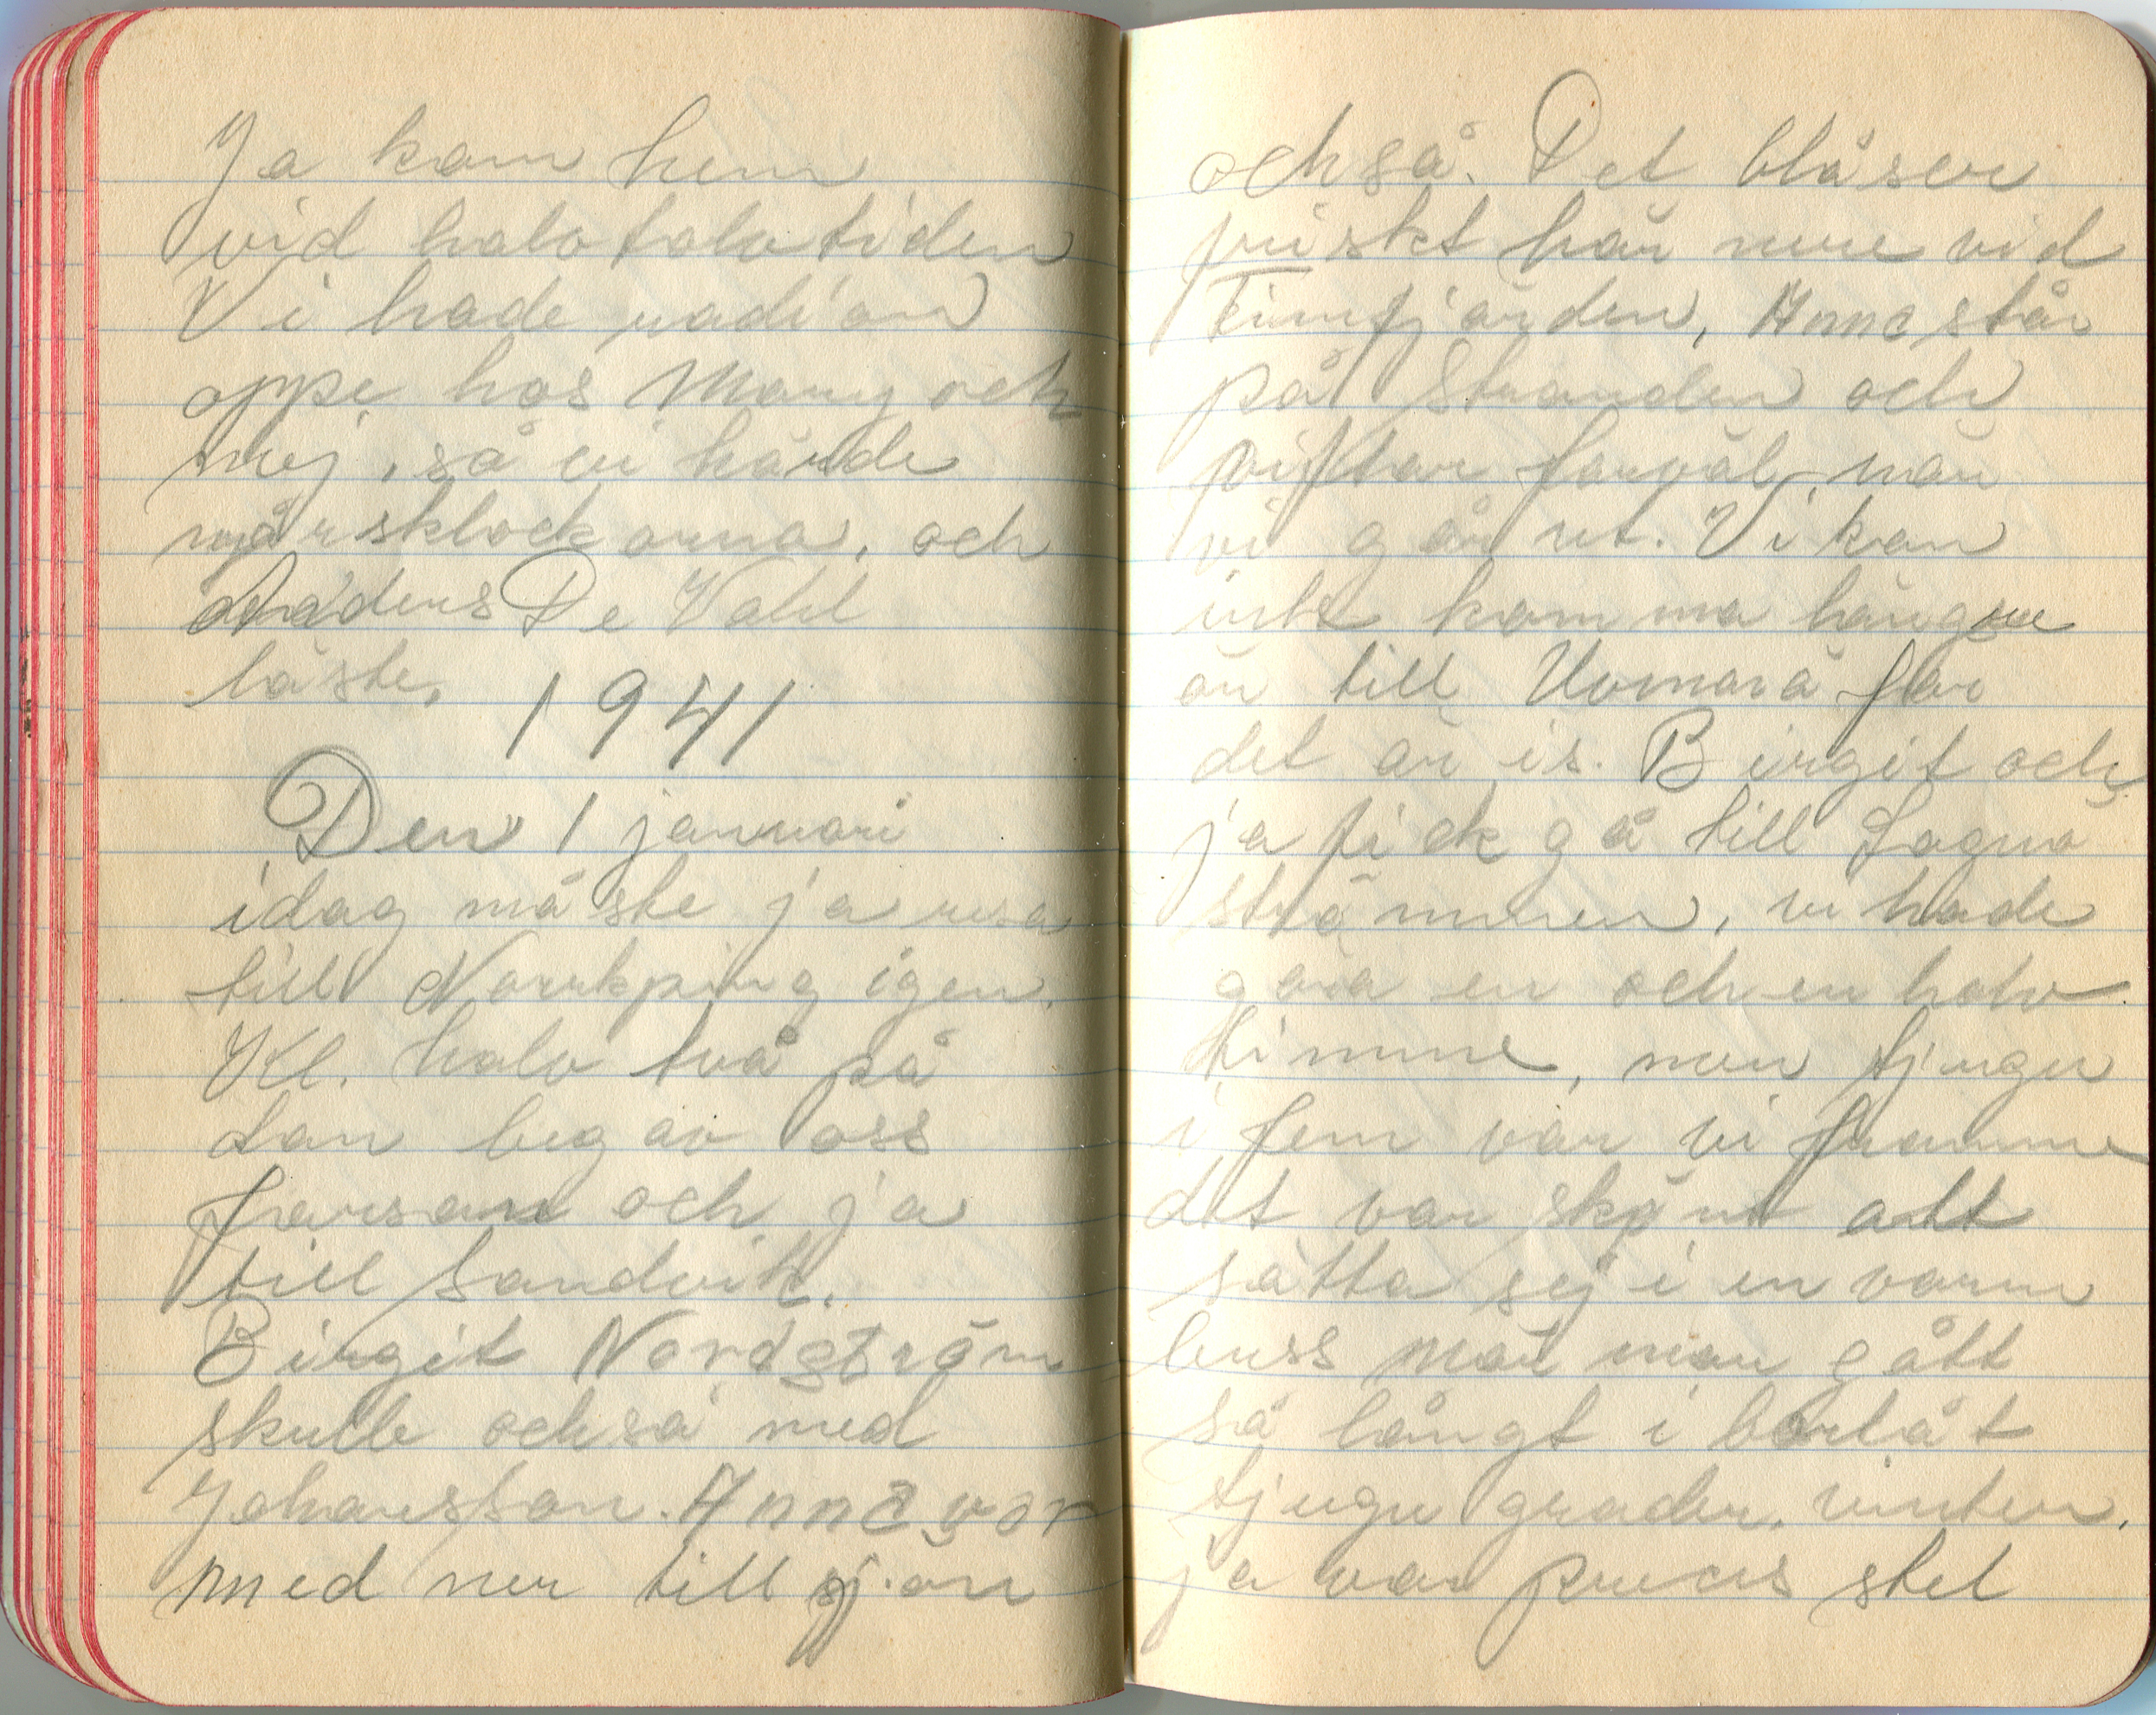 Ja kom hem
vid halv tolv tiden
Vi hade radion
oppe hos Mary och
mej, så vi hörde
nyårsklockorna, och
Anders De Vahl
läste.
1941
Den 1 januari
idag måste ja resa
till Norrkping igen.
Kl. halv två på
dan begav oss
farsan och ja
till Sandvik.
Birgit Nordström
skulle också med
Johansson. Anna var
med ner till sjön
också. Det blåser
friskt här nere vid
fjärden, Anna står
på stranden och
viftar farväl när
vi går ut. Vi kan
inte komma längre
än till Uvmarö för
det är is. Birgit och
ja fick gå till Lagnö
strömmen, vi hade
göra en och en halv
timme, men tjugu
i fem var vi framme
det var skönt att
sätta sej i en varm
buss när man gått
så långt i bortåt
tjugu grader. vinter.
ja var precis stel